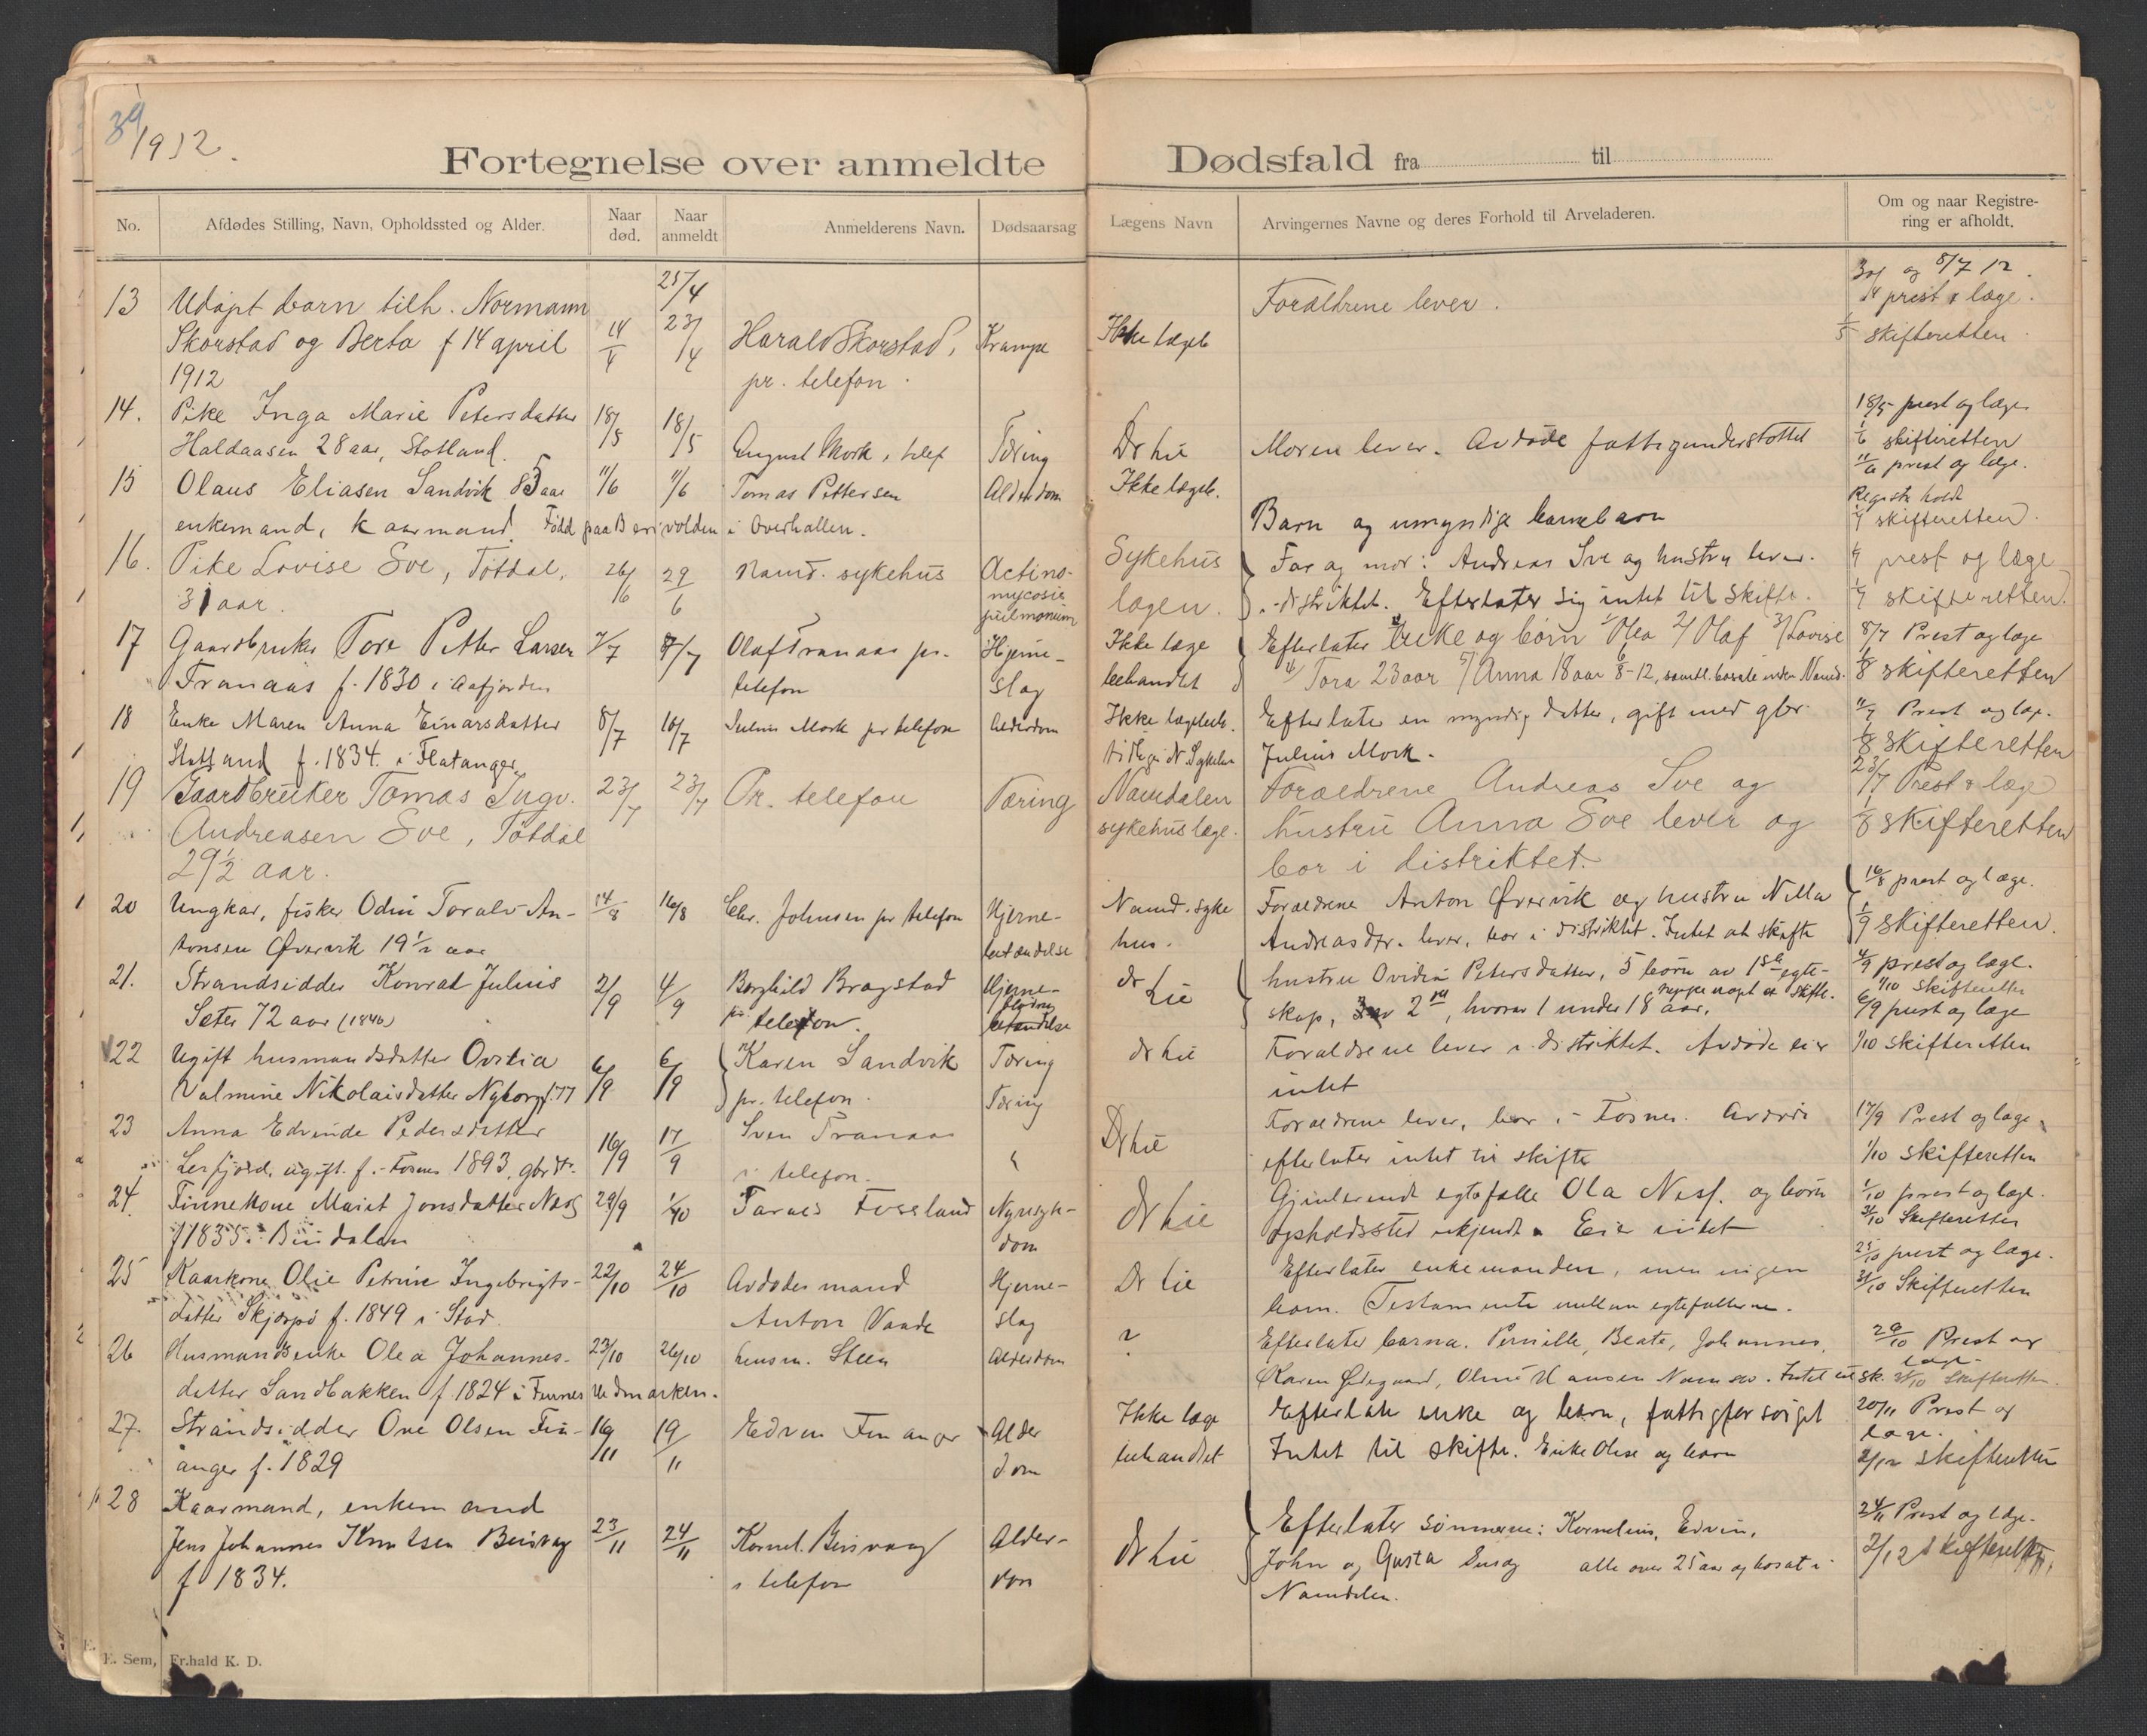 39
1912.
Fortegnelse over anmeldte Dødsfald fra til
No. Afdødes Stilling, Navn, Opholdssted og Alder. Naar død. Naar anmeldt Anmelderens Navn. Dødsaarsag Lægens Navn Arvingernes Navne og deres Forhold til Arveladeren. Om og naar Registrering er afholdt.
13 Udøpt barn tilh. Normann
Skorstad og Berta f 14 april
1912
14/4
25/4
23/4
Harald Skorstad,
pr. telefon.
Krampe
Ikke lægeb
Forældrene lever.
30/4 og 8/7 12.
prest & læge.
1/5 skifteretten
14. Pike Inga Marie Petersdatter
Haldaasen 28 aar, Statland.
18/5
18/5
August Mork, telef
Tæring
Dr Lie
Moren lever. Avdøde fattigunderstøttet
18/5 prest og læge
1/6 skifteretten
15 Olaus Eliasen Sandvik 85 aar
enkemand, kaarmand. Född paa Berivolden i Overhallen.
11/6
11/6
Tomas Pettersen
Alderdom
Ikke lægeb.
Barn og umyndige barnebarn
11/6 prest og læge.
Registr holdt
1/7 skifteretten.
16. Pike Lovise Sve, Tøtdal,
31 aar.
26/6
29/6
Namd. sykehus
Actino-
mycosis
pulmonium
Sykehus
lægen.
Far og mor: Andreas Sve og hustru lever
i distriktet. Efterlater sig intet til skifte.
1/7 prest og læge
1/7 skifteretten.
17 Gaardbruker Tore Petter Larsen
Tranaas f. 1830 i Aafjorden
7/7
8/7
Olaf Tranaas pr.
telefon
Hjerne-
slag
Ikke læge
behandlet
Efterlater enke og børn 1/ Olea 2/ Olaf 3/ Lovise
4/ Tora 23 aar 5/ Anna 18 aar 8-12, samtl. bosate inden Namd.
8/7 Prest og læge
1/8 skifteretten
18 Enke Maren Anna Einarsdatter
Statland f. 1834. i Flatanger
8/7
10/7
Julius Mork pr telefon
Alderdom
Ikke lægebeh.
tidliger N. Sykehus
Efterlater en myndig datter, gift med gbr.
Julius Mork.
11/7 Prest og læge.
1/8 skifteretten
19 Gaardbruker Tomas Ingv.
Andreasen Sve, Tøtdal
29½ aar.
23/7
23/7
Pr. telefon
Tæring
Namdalen
sykehuslæge.
Forældrene Andreas Sve og
hustru Anna Sve lever og
bor i distriktet.
23/7 Prest & læge
1/8 skifteretten
20 Ungkar, fisker Odin Toralv An-
tonsen Øvervik 19½ aar
14/8
16/8
Chr. Johnsen pr telefon
Hjerne-
betændelse
Namd. syke
hus.
Forældrene Anton Øvervik og hustru Nilla
Andreasdtr. lever, bor i distriktet. Intet at skifte
16/8 prest og læge.
1/9 skifteretten.
21. Strandsidder Konrad Julius
Sæter 72 aar (1840)
2/9
4/9
Borghild Bragstad
pr telefon.
Hjerne-
betændelse
dr
Lie
hustru Ovidia Petersdatter, 5 børn av 1ste egte-
skap, 3 av 2det, hvorav 1 under 18 aar. neppe noget at skifte.
4/9 prest og læge.
1/10 skifteretten
22 Ugift husmandsdatter Ovidia
Valmine Nikolaisdatter Nyborg f. 77
6/9
6/9
Karen Sandvik
pr. telefon.
Tæring
Tæring
dr Lie
Forældrene lever i distriktet. Avdøde eier
intet
6/9 prest og læge
1/10 skifteretten
23 Anna Edvinde Pedersdatter
Lerfjord, ugift. f. Fosnes 1893, gbrdtr.
16/9
17/9
Sven Tranaas
i telefon.
Dr Lie
Forældrene lever, bor i Fosnes. Avdøde
efterlater intet til skifte
17/9 Prest og læge
1/10 skifteretten
24. Finnekone Mariet Jonsdatter
f 1835 i Bindalen
29/9
1/10
Fosseland
Nyresyk-
dom
dr Lie
Gjenlevende egtefælle Ola og børn
opholdssted ukjendt. Eier intet
1/10 prest og læge.
31/10 Skifteretten
25 Kaarkone Olie Petrine Ingebrigts-
datter Skjærpø f. 1849 i Stod.
22/10
24/10
Avdødes mand
Anton Vaade
Hjerne-
slag
Dr Lie
Efterlater enkemanden, men ingen
barn. Testamente mellem egtefællerne.
25/10 prest og læge.
31/10 Skifteretten
26 Husmandsenke Olea Johannes-
datter Sandbakken f. 1824 i Finnes Hedmarken.
23/10
26/10
Lensm. Steen
Alderdom
?
Efterlater barna. Pernille, Beate, Johannes,
Karen Ødegaard, Oline Hansen Namsos. Intet til sk.
29/10 Prest og
læge
31/10 Skifteretten
27. Strandsidder Ove Olsen Fin-
anger f. 1829
16/11
19/11
Edvin Finanger
Alder
dom
Ikke læge
behandlet
Efterlater enke og børn, fattigforsørget
Intet til skifte. Enke Olise og barn
20/11 Prest og
læge.
2/12 skifteretten
28 Kaarmand, enkemand
Jens Johannes Knutsen Beisvag
f 1834.
23/11
24/11
Kornel. Beisvaag
i telefon
Alder-
dom
dr Lie
Efterlater sønnerne: Kornelius, Edvin,
John og Gusta alle over 25 aar og bosat i
Namdalen.
24/11 Prest og læge.
2/12 skifteretten
E. Sem, Fr.hald K. D.